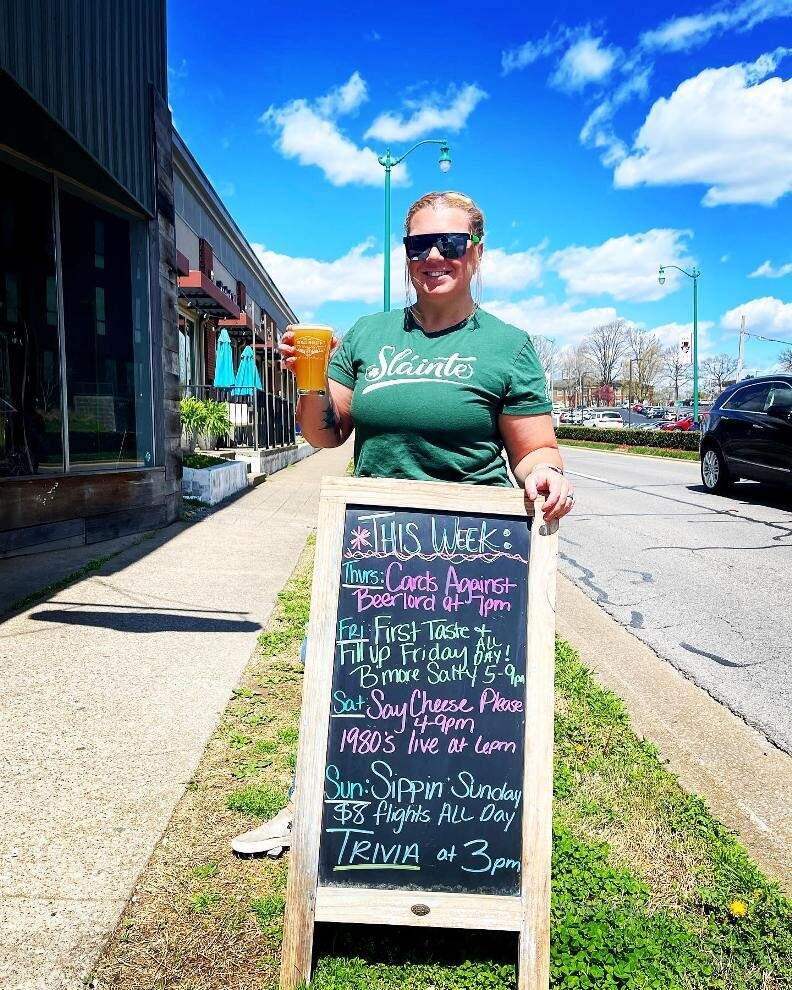 Sláinte
*THIS WEEK:
Thurs: Cards Against
Beerlord at 7pm
Fri: First Taste +
Fill up Friday ALL DAY!
B'more Salty 5-9pm
Sat: Say Cheese Please
4-9pm
1980's live at 6pm
Sun: Sippin' Sunday
$8 flights ALL Day
TRIVIA at 3pm